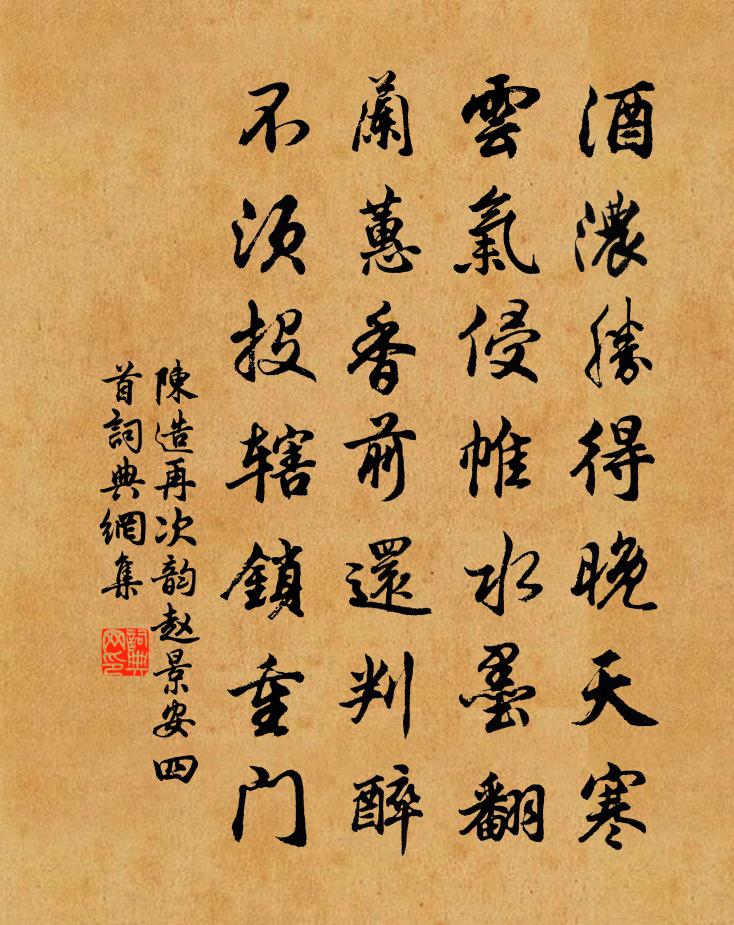 酒濃勝得晚天寒
雲氣侵帷水墨翻
蘭蕙香前還判醉
不須投辖鎖重门
陳造再次韵赵景安四
首詞典網集
詞典网印